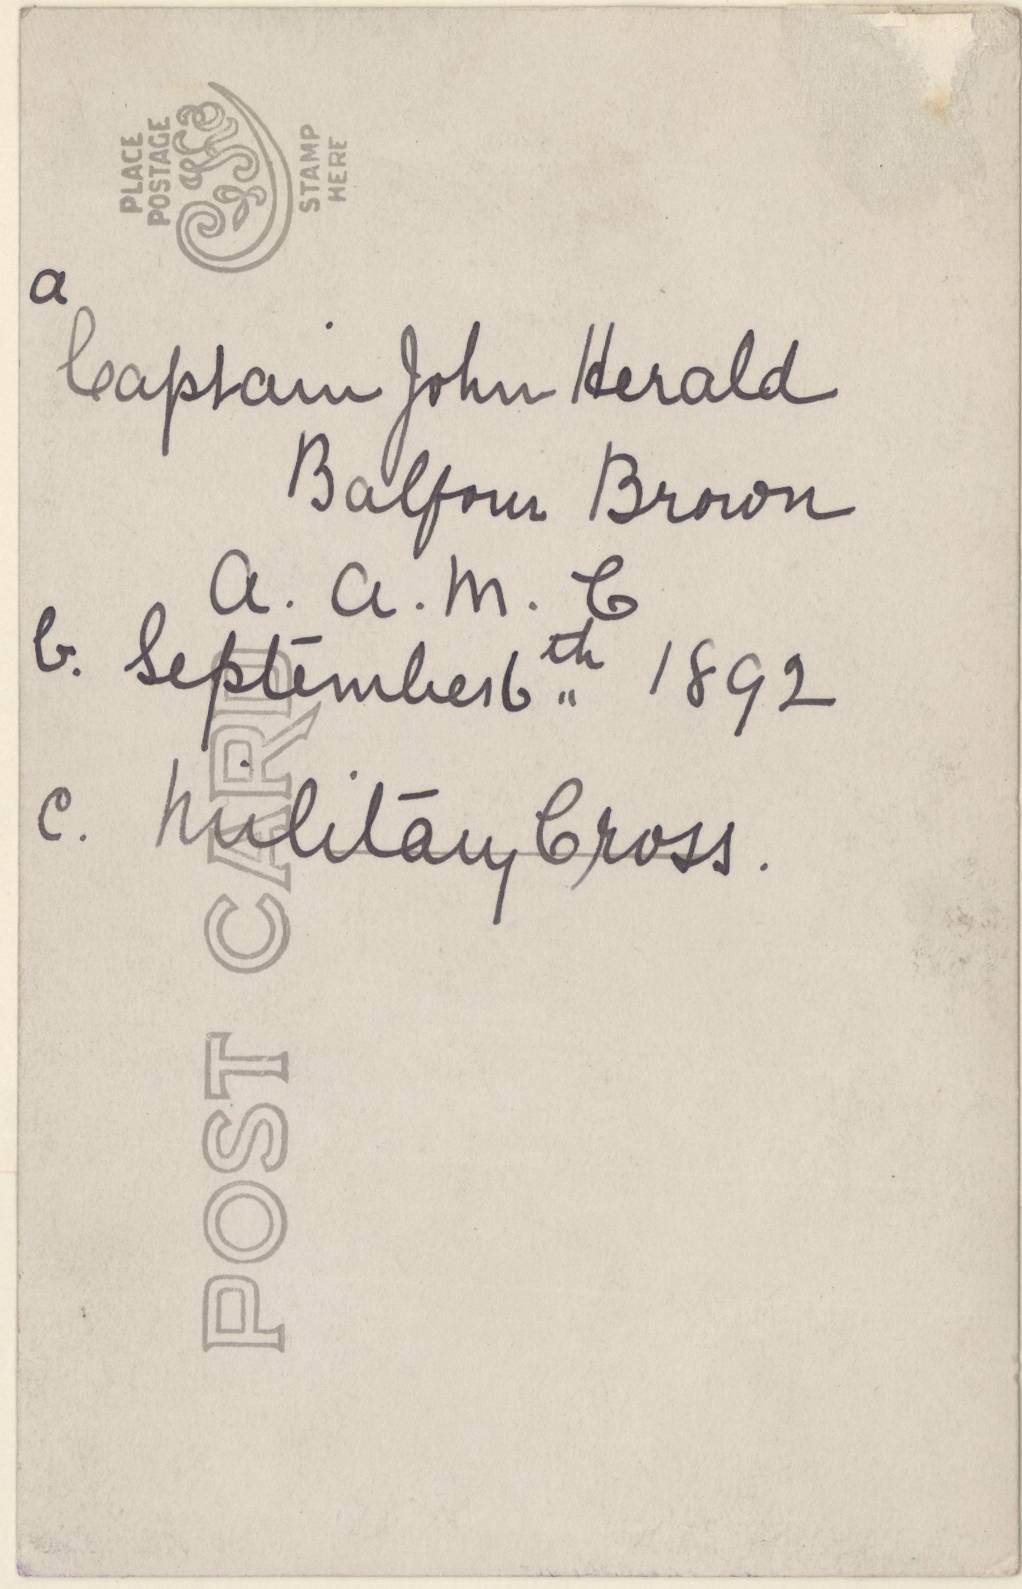 PLACE
POSTAGE
STAMP
HERE
a
Captain John Herald
Balfour Brown
A. A. M. C
b. September 6th 1892
c. Military Cross.
POST CARD